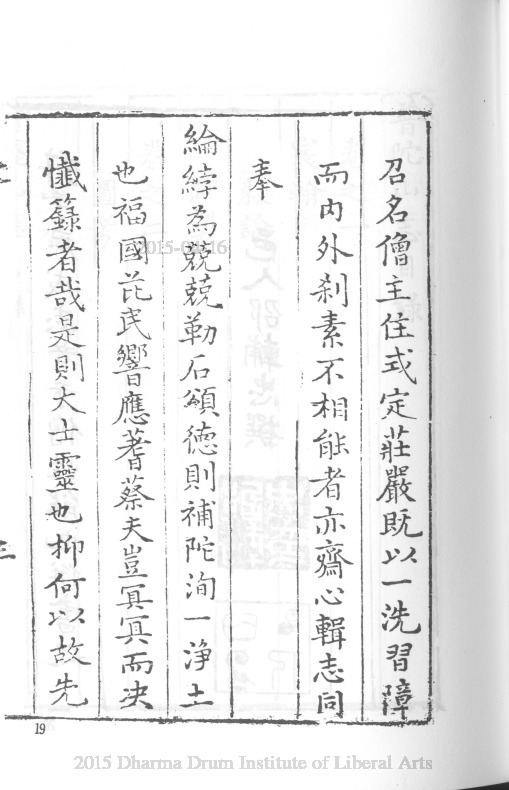 召名僧主住式定莊嚴既以一洗習障
而內外剎素不相能者亦齋心輯志同
奉
綸綍為兢兢勒石頌德則補陀洵一淨土
也福國芘民響應蓍蔡夫豈冥冥而決
懺籙者哉是則大士靈也抑何以故先
19
2015 Dharma Drum Institute of Liberal Arts